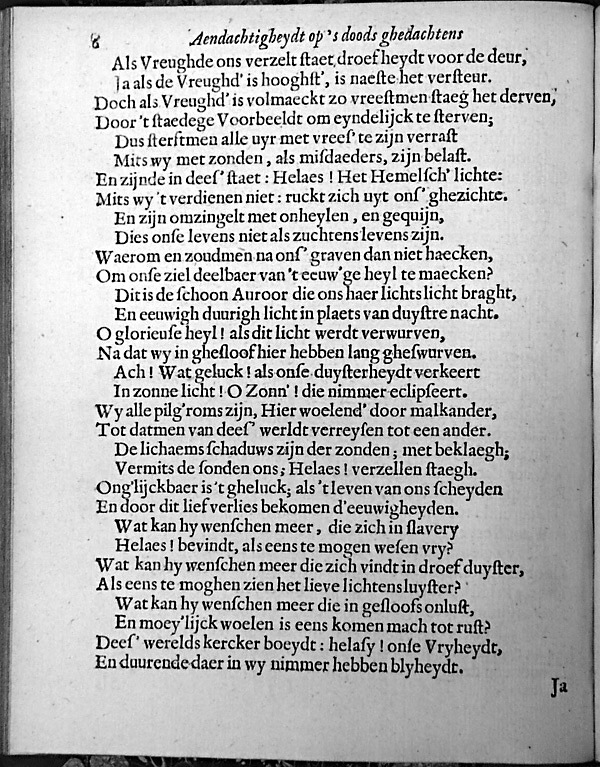 8 Aendachtigheydt op 's doods ghedachtens
Als Vreughde ons verzelt ſtaet, droefheydt voor de deur,
Ja als de Vreughd' is hooghſt', is naeſte het verſteur.
Doch als Vreughd' is volmaeckt zo vreeſtmen ſtaeg het derven,
Door 't ſtaedege Voorbeeldt om eyndelijck te ſterven;
Dus ſterftmen alle uyr met vreeſ' te zijn verraſt
Mits wy met zonden, als miſdaeders, zijn belaſt.
En zijnde in deeſ' ſtaet: Helaes! Het Hemelſch' lichte:
Mits wy 't verdienen niet: ruckt zich uyt onſ' ghezichte.
En zijn omzingelt met onheylen, en gequijn,
Dies onſe levens niet als zuchtens levens zijn.
Waerom en zoudmen na onſ' graven dan niet haecken,
Om onſe ziel deelbaer van 't eeuw'ge heyl te maecken?
Dit is de ſchoon Auroor die ons haer lichts licht braght,
En eeuwigh duurigh licht in plaets van duyſtre nacht.
O glorieuſe heyl! als dit licht werdt verwurven,
Na dat wy in gheſloof hier hebben lang gheſwurven.
Ach! Wat geluck! als onſe duyſterheydt verkeert
In zonne licht! O Zonn'! die nimmer eclipſeert.
Wy alle pilg'roms zijn, Hier woelend' door malkander,
Tot datmen van deeſ' werldt verreyſen tot een ander.
De lichaems ſchaduws zijn der zonden; met beklaegh;
Vermits de ſonden ons; Helaes! verzellen ſtaegh.
Ong'lijckbaer is 't gheluck; als 't leven van ons ſcheyden
En door dit lief verlies bekomen d'eeuwigheyden.
Wat kan hy wenſchen meer, die zich in ſlavery
Helaes! bevindt, als eens te mogen weſen vry?
Wat kan hy wenſchen meer die zich vindt in droef duyſter,
Als eens te moghen zien het lieve lichtens luyſter?
Wat kan hy wenſchen meer die in gefloofs onluſt,
En moey'lijck woelen is eens komen mach tot ruſt?
Deeſ' werelds kercker boeydt: helaſy! onſe Vryheydt,
En duurende daer in wy nimmer hebben blyheydt.
Ja